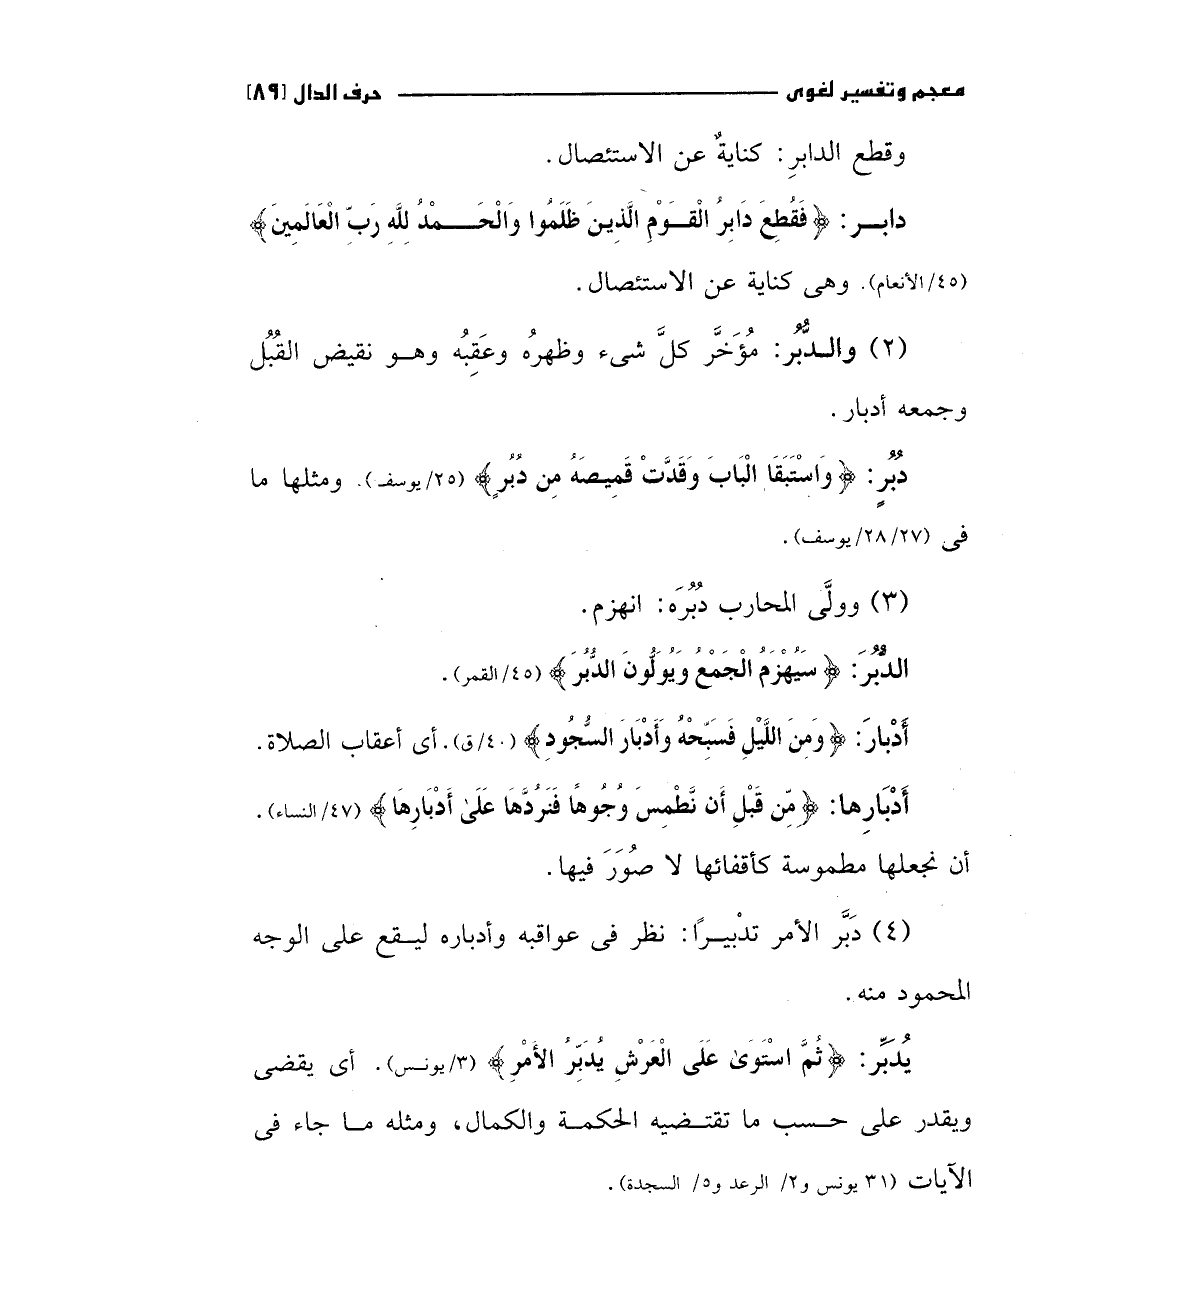 معجم وتفسير لغوى ــــــــــ حرف الدال [٨٩]
وقطع الدابرِ : كنايةٌ عن الاستئصال .
دابــر : ﴿ فَقُطِعَ دَابِرُ الْقَــوْمِ الَّذِينَ ظَلَمُوا وَالْحَــمْدُ لِلَّهِ رَبِّ الْعَالَمِينَ ﴾
(٤٥/الأنعام). وهى كناية عن الاستئصال .
(٢) والـدُّبُر: مُؤَخَّر كلَّ شىء وظهرهُ وعَقِبُه وهـو نقيض القُبُل
وجمعه أدبار .
دُبُرٍ : ﴿ وَاسْتَبَقَا الْبَابَ وَقَدَّتْ قَمِيصَهُ مِن دُبُرٍ ﴾ (٢٥/يوسف). ومثلها ما
فى (٢٨/٢٧/يوسف).
(٣) وولَّى المحارب دُبُرَه: انهزم .
الدُّبُرَ: ﴿ سَيُهْزَمُ الْجَمْعُ وَيُوَلُّونَ الدُّبُرَ ﴾ (٤٥/القمر).
أَدْبارَ: ﴿ وَمِنَ اللَّيْلِ فَسَبِّحْهُ وَأَدْبَارَ السُّجُودِ ﴾ (٤٠/ق). أى أعقاب الصلاة .
أَدْبَارِها: ﴿ مِّن قَبْلِ أَن نَّطْمِسَ وُجُوهًا فَنَرُدَّهَا عَلَىٰ أَدْبَارِهَا ﴾ (٤٧/النساء).
أن نجعلها مطموسة كأقفائها لا صُوَرَ فيها .
(٤) دَبَّر الأمر تدْبيـرًا: نظر فى عواقبه وأدباره ليـقع على الوجه
المحمود منه .
يُدَبِّر: ﴿ ثُمَّ اسْتَوَىٰ عَلَى الْعَرْشِ يُدَبِّرُ الأَمْرَ ﴾ (٣/يونـس). أى يقضى
ويقدر على حـسب ما تقتـضيه الحكمـة والكمال، ومثله مـا جاء فى
الآيات (٣١ يونس و٢/ الرعد و٥/ السجدة).